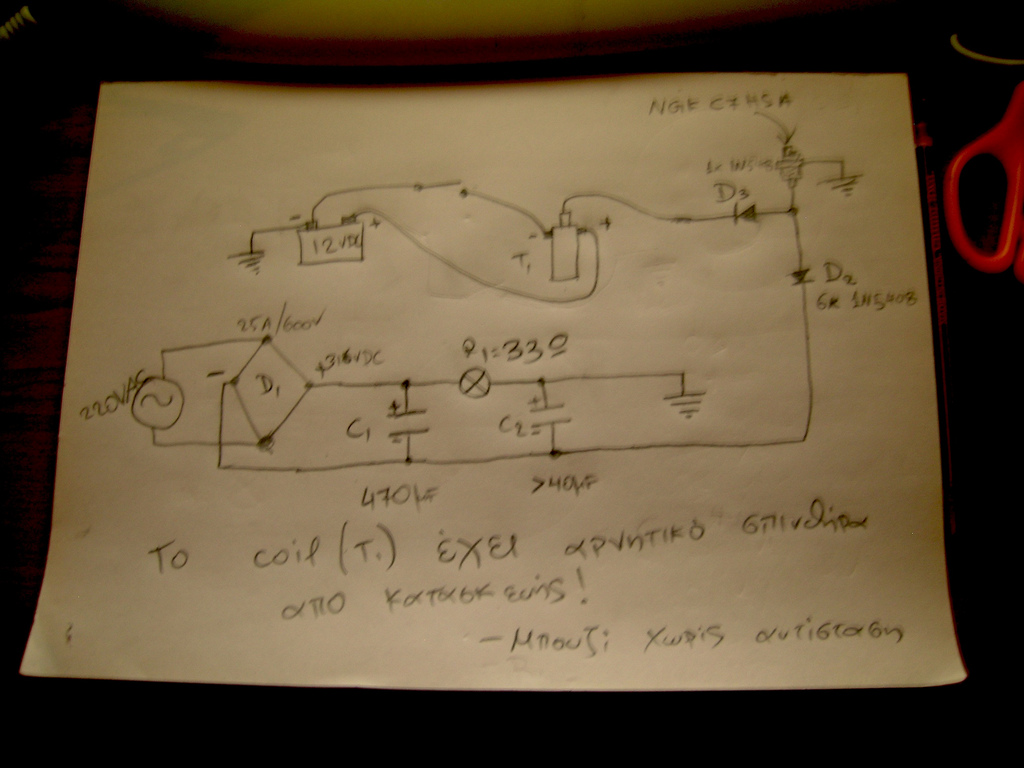 NGK C7HSA
D3
- +
12VDC
- +
T1
D2
6x 1N5408
25A/600V
+316VDC
R1=33Ω
220VAC
-
D1
C1
+
-
C2
+
-
470μF
>40μF
Το coil (T1) έχει αρνητικό σπινθήρα
από κατασκευής!
- Μπουζί χωρίς αντίσταση